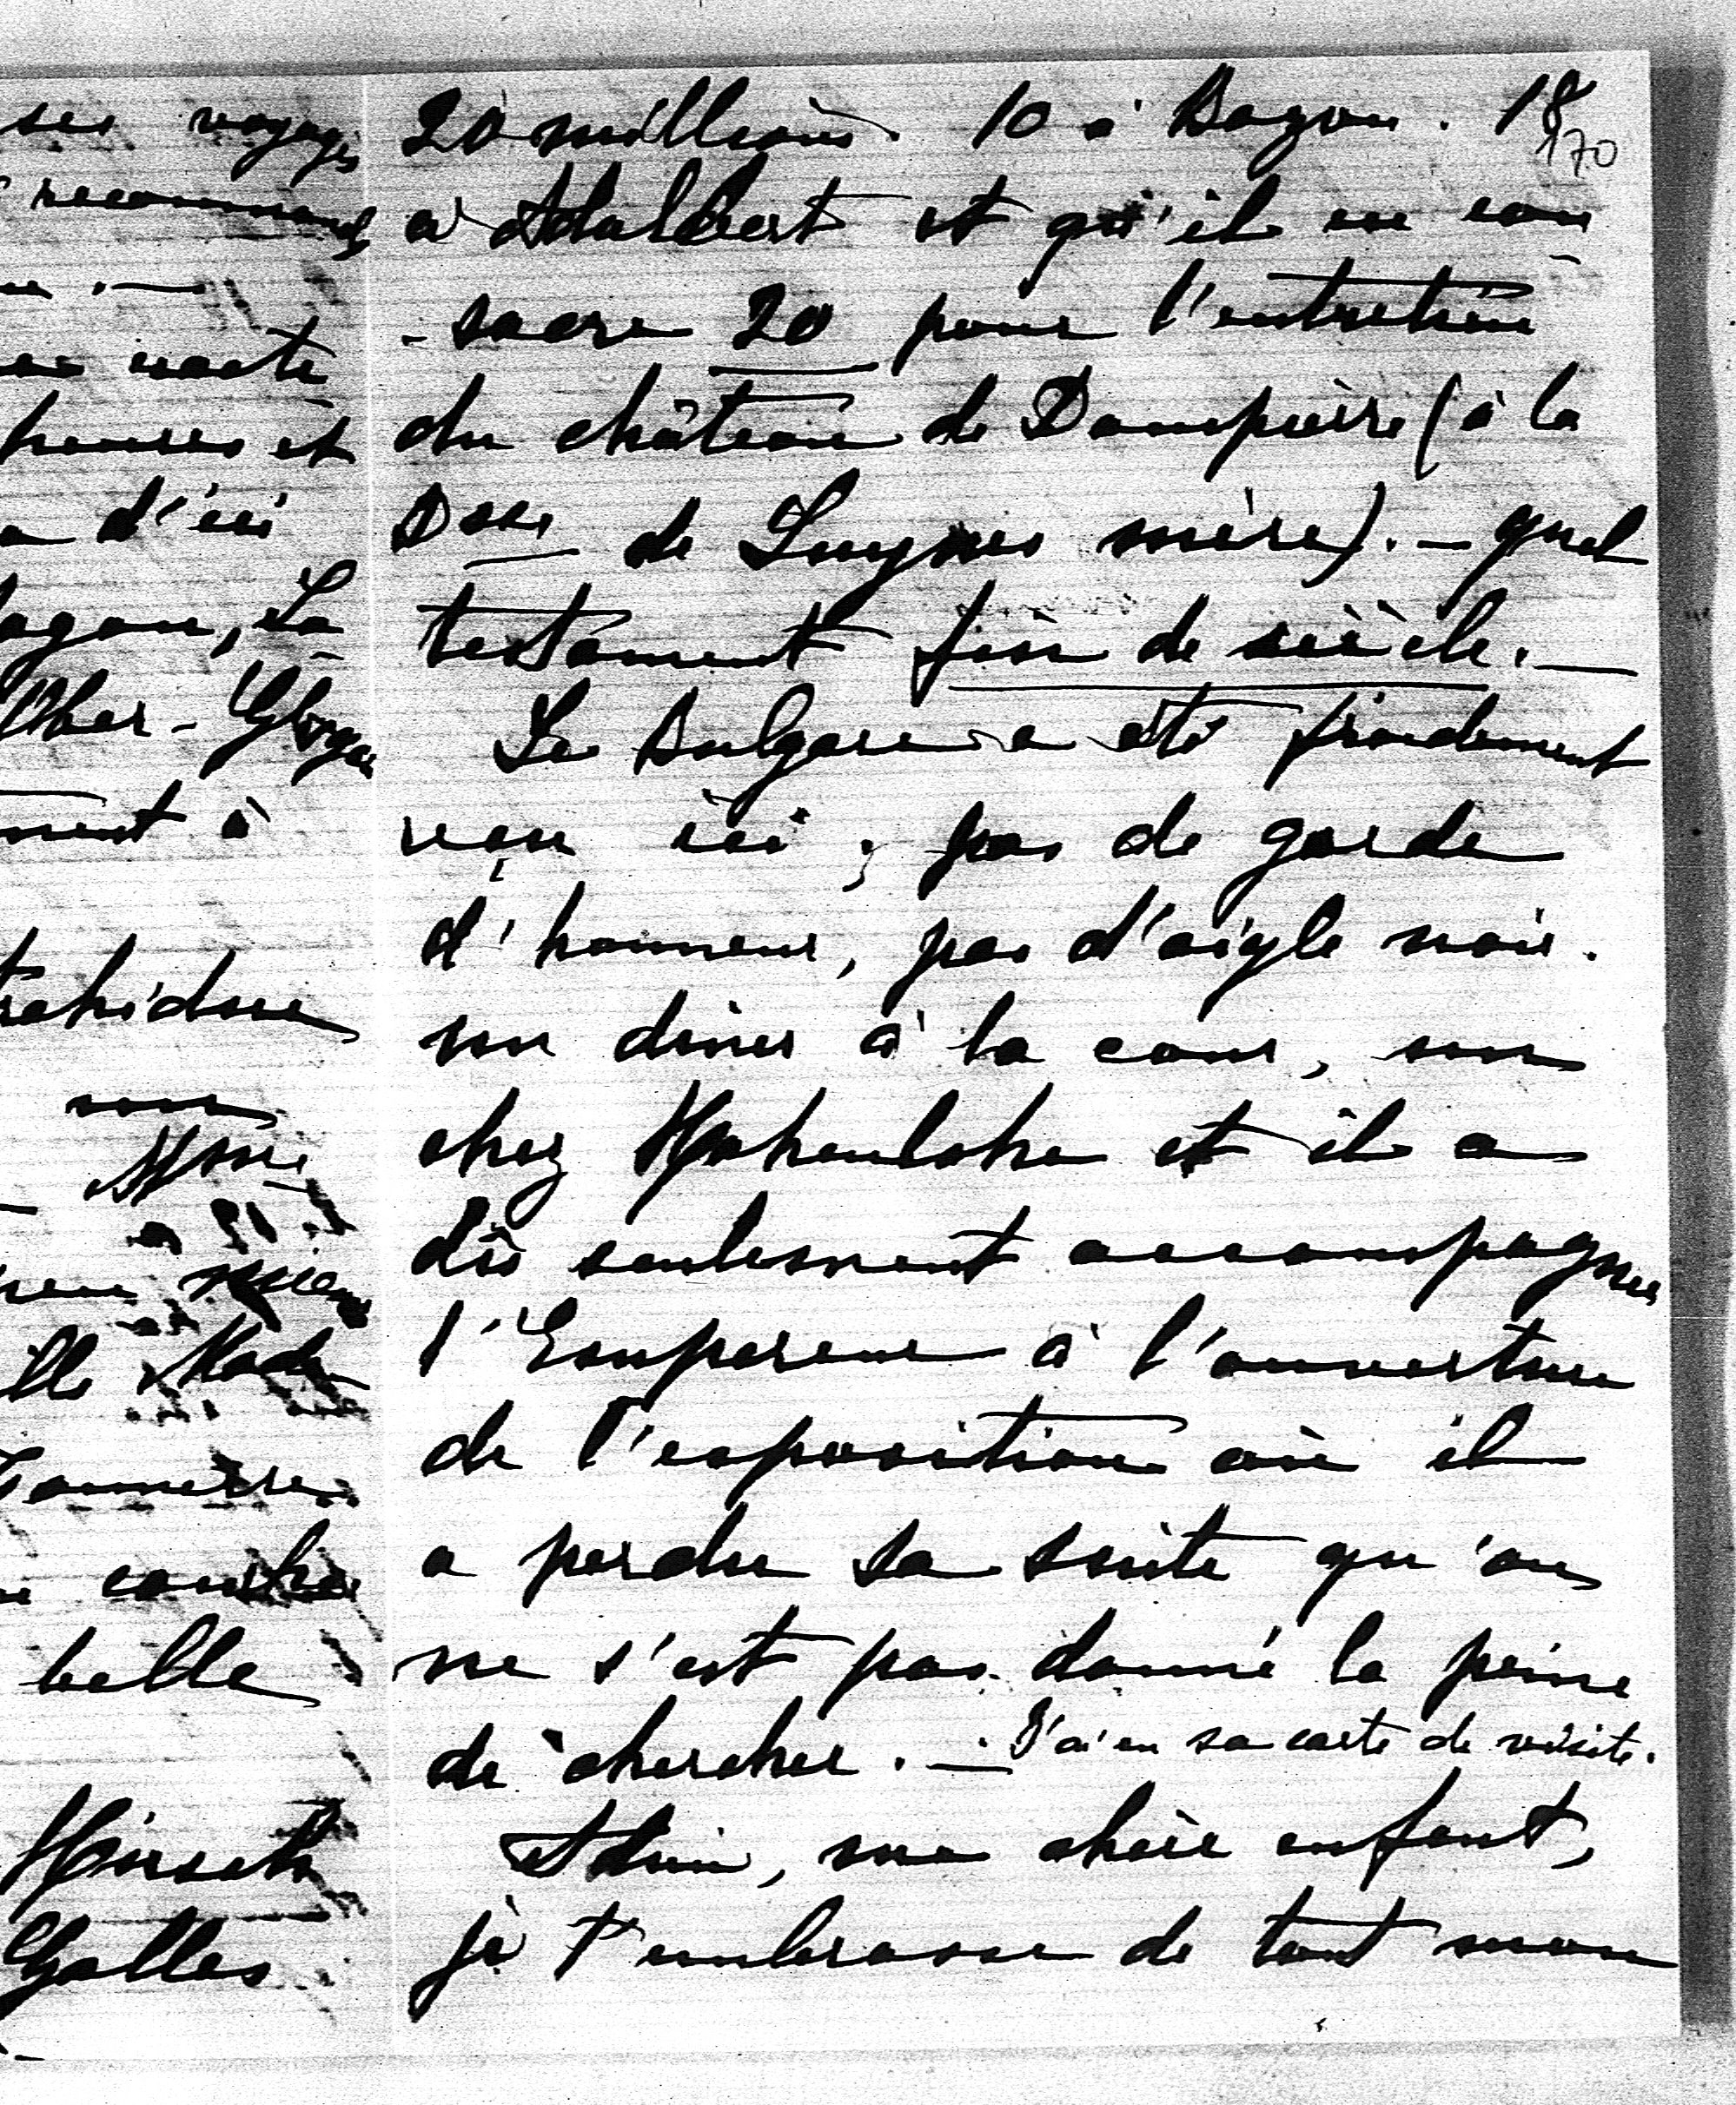 ses voyages
recommand
vaste
et
d'ici
agan, La
Ober-Glogau
ment à
rchiduc
vous
Mme
belle
Hirsch
Galles
20 millions. 10 à Sagan. 18
170
à Adalbert et qu'il en con
-sacre 20 pour l'entretien
du château de Dampierre (à la
Dsse de Luynes mère). — quel
testament fin de siècle. —
Le Bulgare a été froidement
reçu ici ; pas de garde
d'honneur, pas d'aigle noir.
un diner à la cour, un
chez Hohenlohe et il a
dû seulement accompagner
l'Empereur à l'ouverture
de l'exposition où il
a perdu sa suite qu'on
ne s'est pas donné la peine
de chercher. — J'ai eu sa carte de visite.
Adieu, ma chère enfant,
je t'embrasse de tout mon